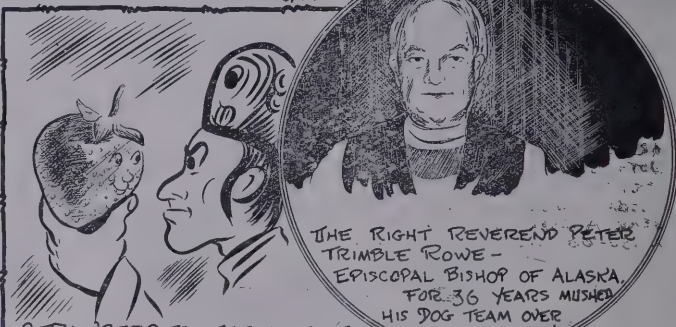 THE RIGHT REVEREND PETER
TRIMBLE ROWE -
EPISCOPAL BISHOP OF ALASKA.
FOR 36 YEARS MUSHED
HIS DOG TEAM OVER